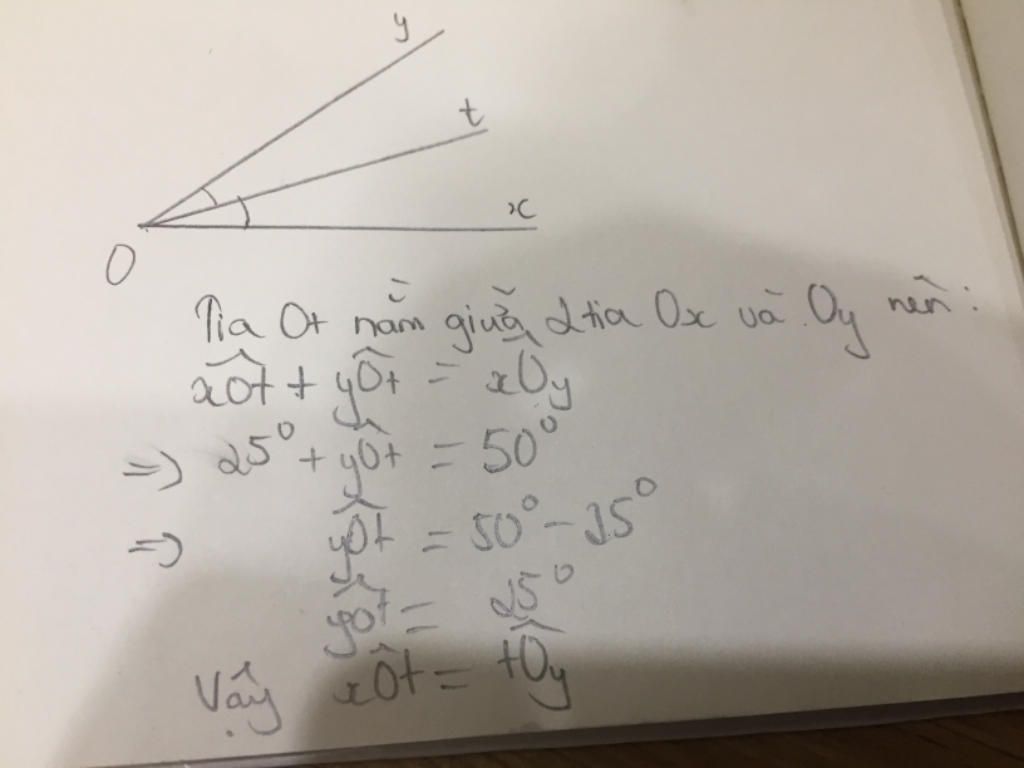 y
t
x
O
Tia Ot nằm giữa 2 tia Ox và Oy nên:
xÔt + yÔt = xÔy
=) 25° + yÔt = 50°
=) yÔt = 50° - 25°
yÔt = 25°
Vậy xÔt = tÔy